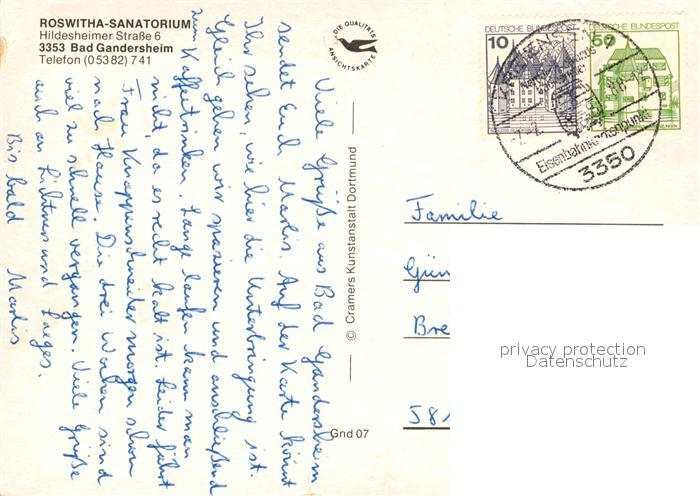 ROSWITHA-SANATORIUM
Hildesheimer Straße 6
3353 Bad Gandersheim
Telefon (05382) 741
DIE QUALITÄTS
ANSICHTSKARTE
Viele Grüße aus Bad Gandersheim
sendet Euch Marlis. Auf der Karte könnt
Ihr sehen, wie hier die Unterbringung ist.
Gleich gehen wir spazieren und anschließend
zum Kaffeetrinken. Lange laufen kann man
nicht, da es recht kalt ist. Leider fährt
Frau Knappenschneider morgen schon
nach Hause. Die drei Wochen sind
viel zu schnell vergangen. Viele Grüße
auch an und
Bis bald Marlis
© Cramers Kunstanstalt Dortmund
Gnd 07
DEUTSCHE BUNDESPOST
10
DEUTSCHE BUNDESPOST
50
Eisenbahnknotenpunkt
3350
Familie
Gün
Bre
581
privacy protection
Datenschutz